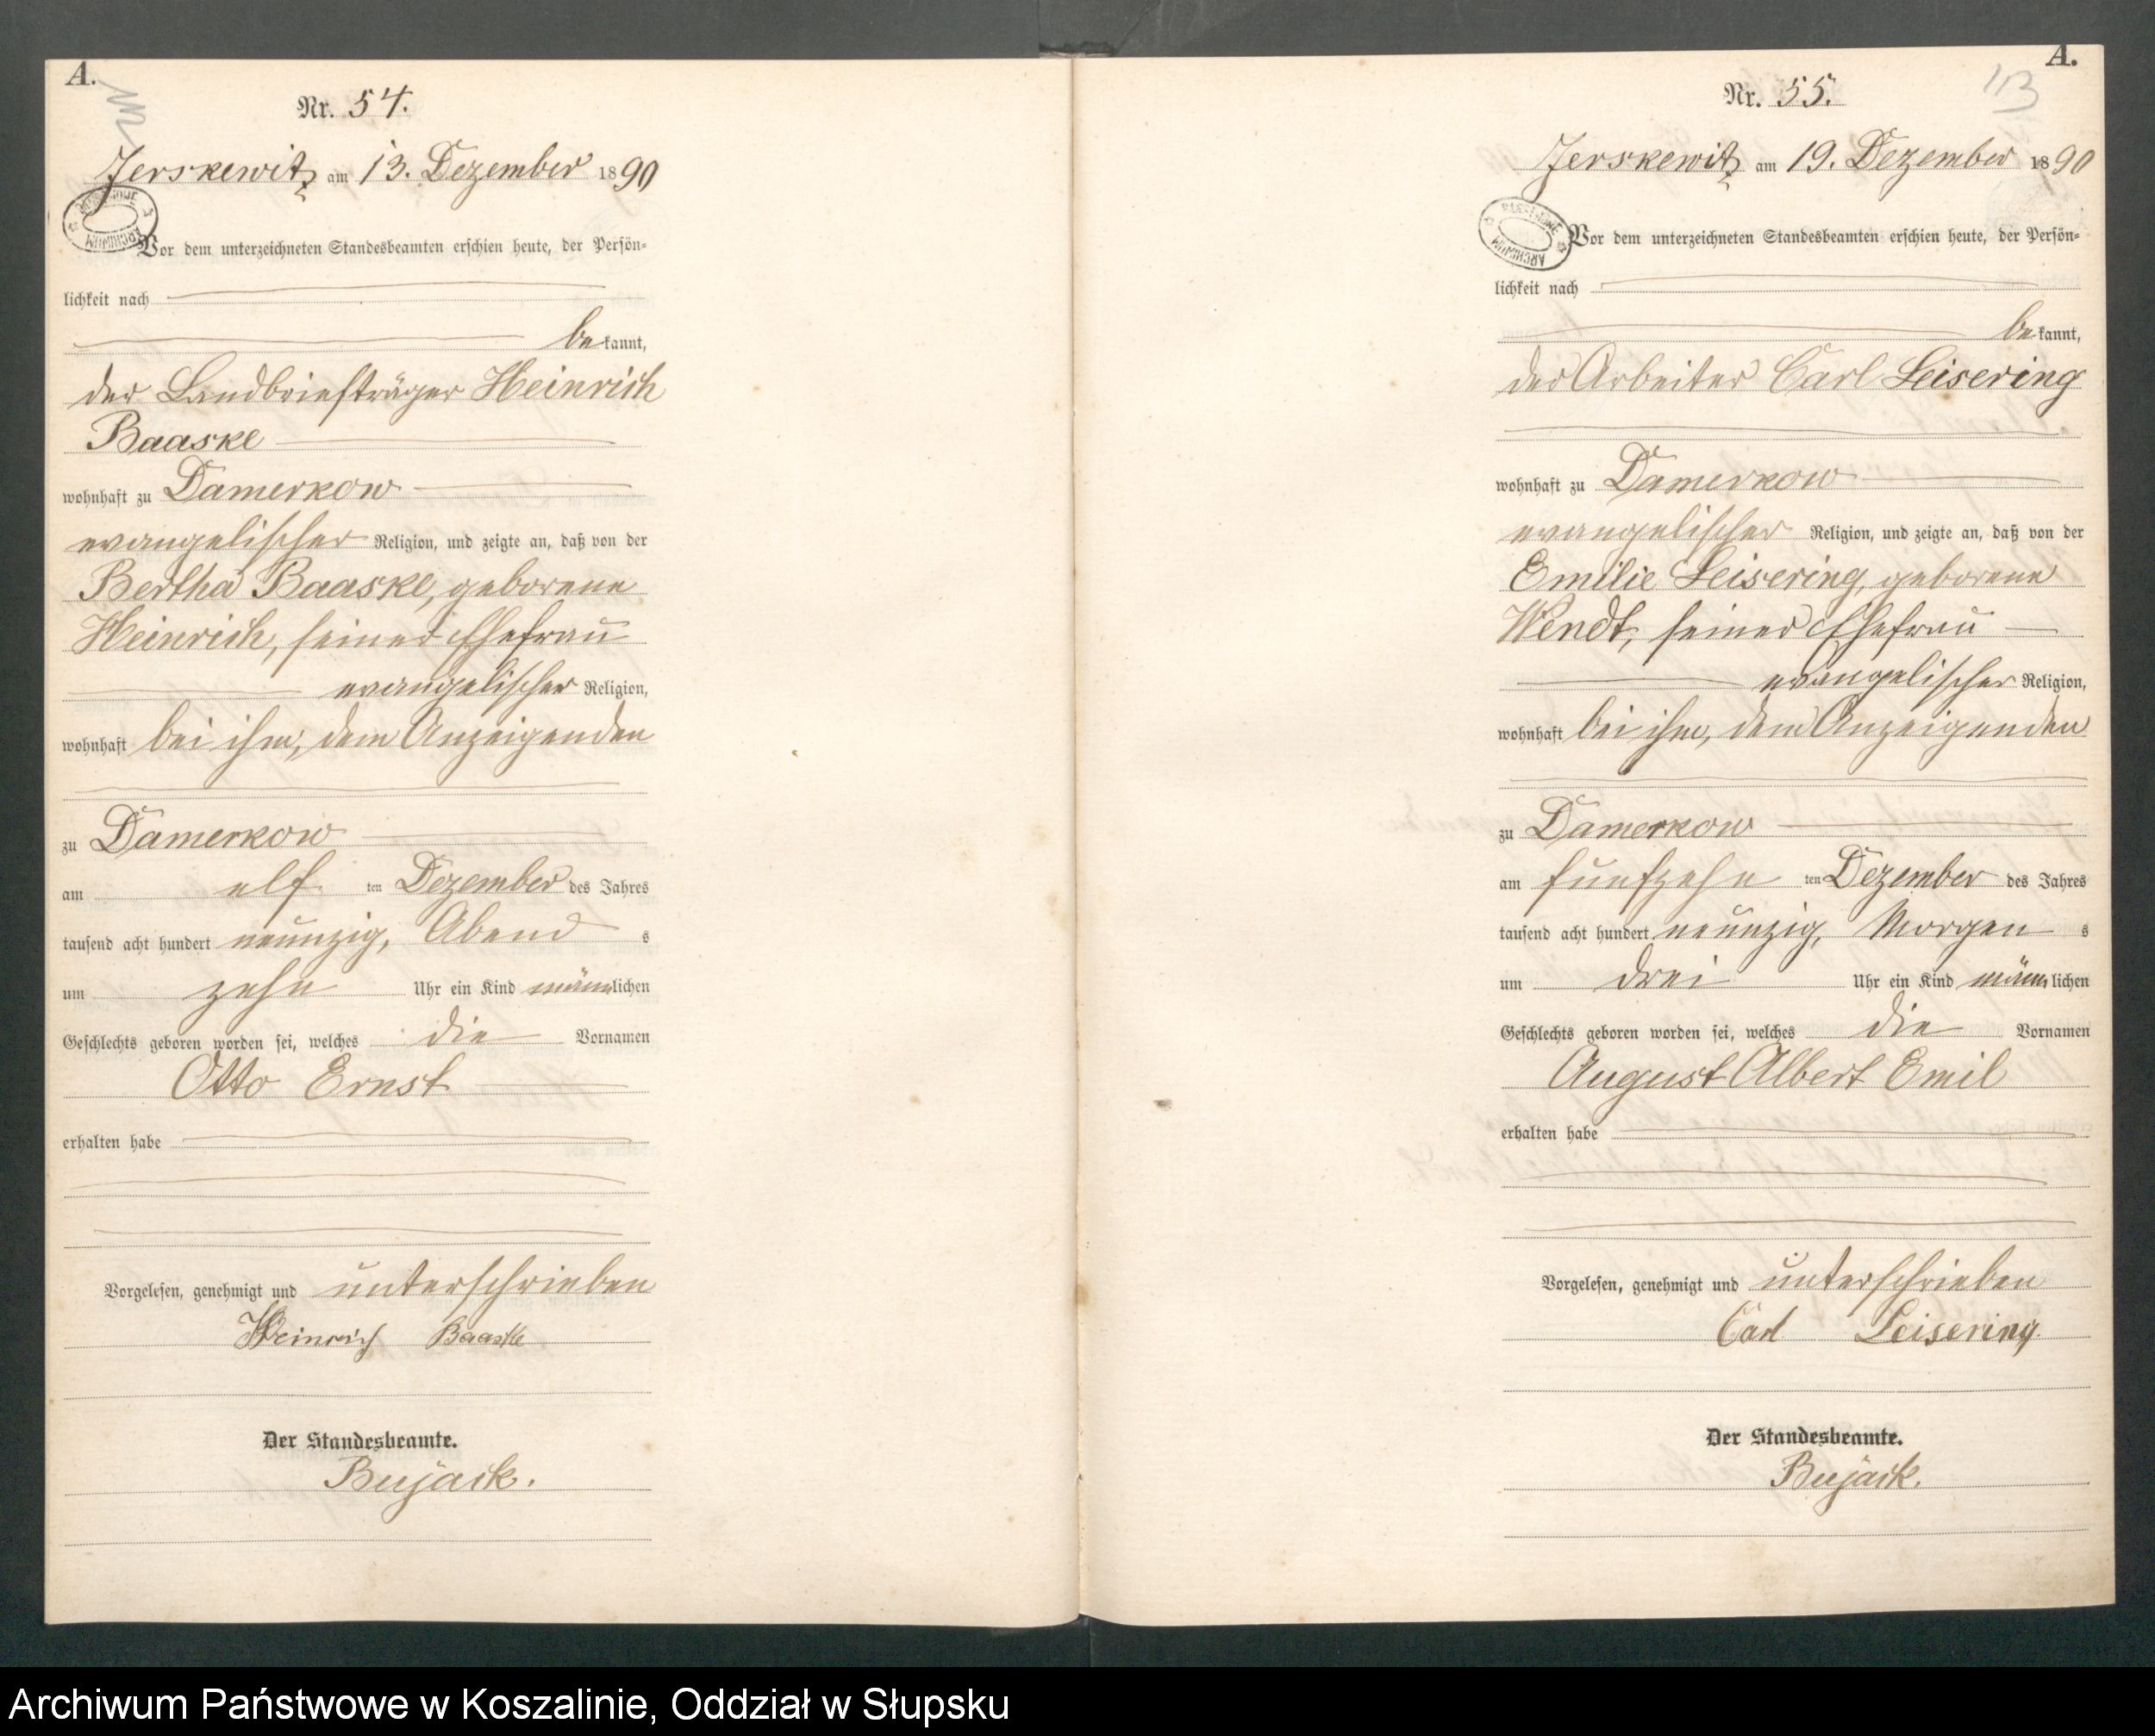 A.
Nr. 54.
Jerskewitz am 13. Dezember 1890
Vor dem unterzeichneten Standesbeamten erschien heute, der Persön=
lichkeit nach
bekannt,
der Landbriefträger Heinrich
Baaske
wohnhaft zu Damerkow
evangelischer Religion, und zeigte an, daß von der
Bertha Baaske, geborene
Heinrich, seiner Ehefrau
evangelischer Religion,
wohnhaft bei ihm, dem Anzeigenden
zu Damerkow
am elf ten Dezember des Jahres
tausend acht hundert neunzig, Abend s
um zehn Uhr ein Kind männlichen
Geschlechts geboren worden sei, welches die Vornamen
Otto Ernst
erhalten habe
Vorgelesen, genehmigt und unterschrieben
Heinrich Baaske
Der Standesbeamte.
Bujack.
A.
113
Nr. 55.
Jerskewitz am 19. Dezember 1890
Vor dem unterzeichneten Standesbeamten erschien heute, der Persön=
lichkeit nach
bekannt,
der Arbeiter Carl Leisering
wohnhaft zu Damerkow
evangelischer Religion, und zeigte an, daß von der
Emilie Leisering, geborene
Wendt, seiner Ehefrau
evangelischer Religion,
wohnhaft bei ihm, dem Anzeigenden
zu Damerkow
am fünfzehn ten Dezember des Jahres
tausend acht hundert neunzig, Morgen s
um drei Uhr ein Kind männlichen
Geschlechts geboren worden sei, welches die Vornamen
August Albert Emil
erhalten habe
Vorgelesen, genehmigt und unterschrieben
Carl Leisering
Der Standesbeamte.
Bujack.
Archiwum Państwowe w Koszalinie, Oddział w Słupsku